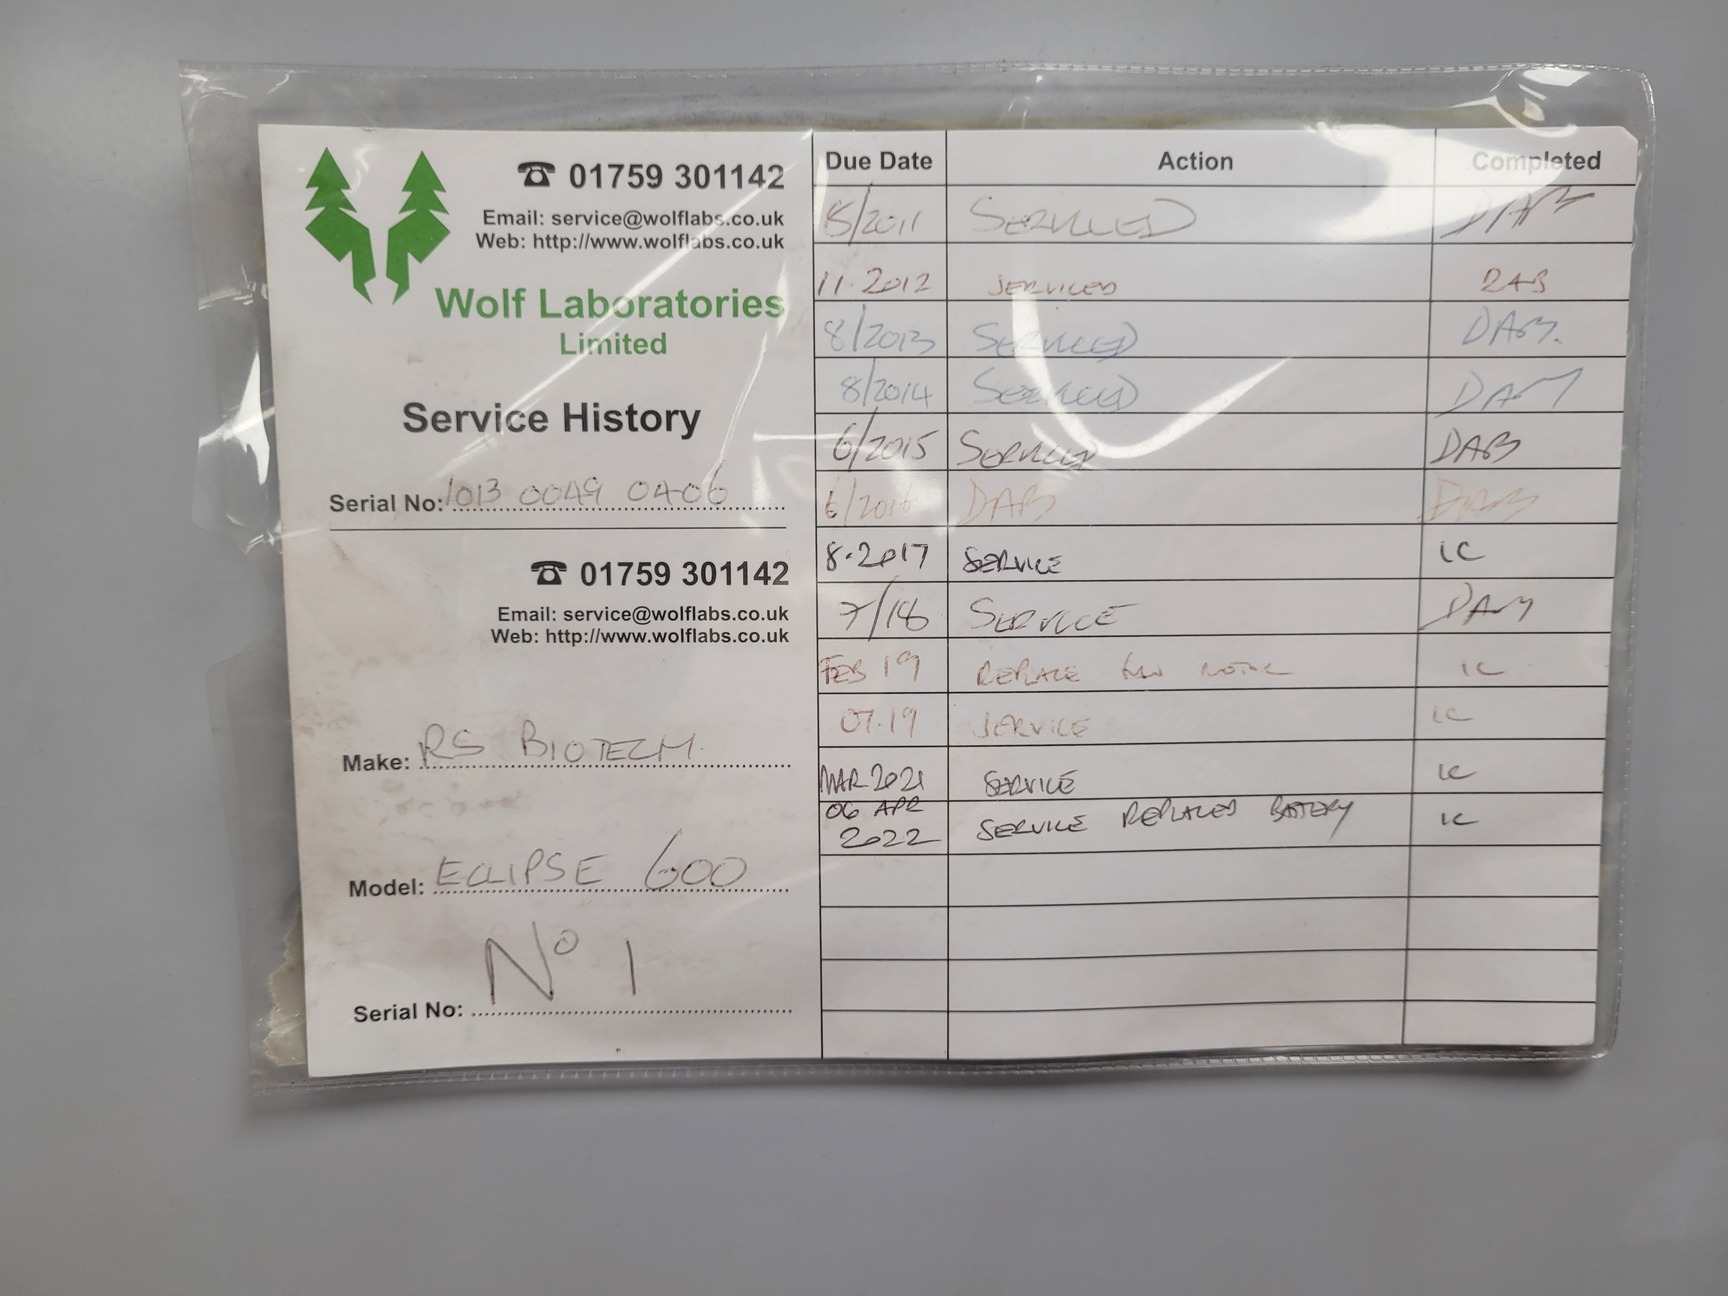 01759 301142
Email: service@wolflabs.co.uk
Web: http://www.wolflabs.co.uk
Wolf Laboratories
Limited
Service History
Serial No: 1013 0049 0406
01759 301142
Email: service@wolflabs.co.uk
Web: http://www.wolflabs.co.uk
Make: RS BIOTECH.
Model: ECLIPSE 600
Nº 1
Serial No:
Due Date Action Completed
8/2011 SERVICED DAB
11.2012 SERVICED DAB
8/2013 SERVICED DAB.
8/2014 SERVICED DAB
6/2015 SERVICED DAB
6/2016 DAB DAB
8.2017 SERVICE IC
7/18 SERVICE DAB
FEB 19 REPLACE FAN MOTOR IC
07.19 SERVICE IC
MAR 2021 SERVICE IC
06 APR
2022 SERVICE REPLACED BATTERY IC